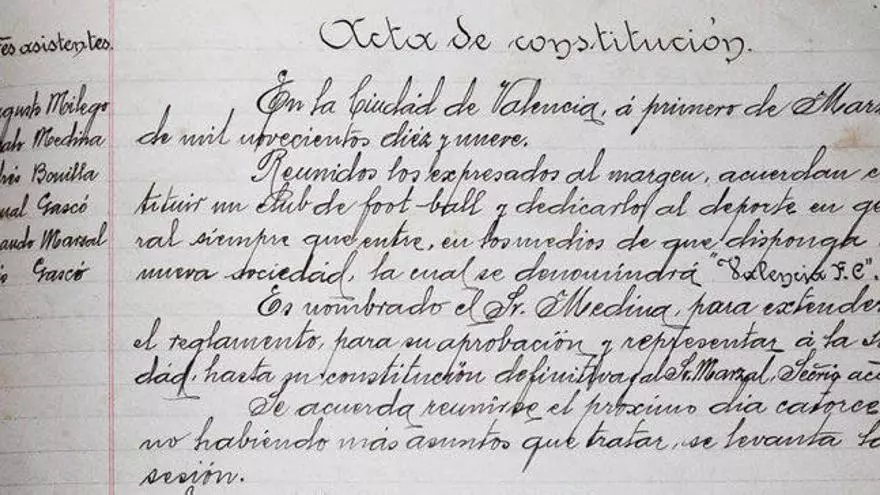 Acta de constitución.
res asistentes.
ugusto Milego
Medina
Bonilla
ual Gascó
ando Marzal
Gascó
En la Ciudad de Valencia, á primero de Mar
de mil novecientos diéz y nueve.
Reunidos los expresados al margen, acuerdan c
tituir un club de foot-ball y dedicarlo, al deporte en ge
ral siempre que entre, en los medios de que disponga
nueva sociedad, la cual se denomindrá "Valencia F.C".
Es nombrado el Sr. Medina, para extender
el reglamento, para su aprobación y representar á la S
dad, hasta su constitución definitiva y al Sr. Marzal, Secrio
Se acuerda reunirse el próximo dia catorce
no habiendo más asuntos que tratar, se levanta la
sesión.